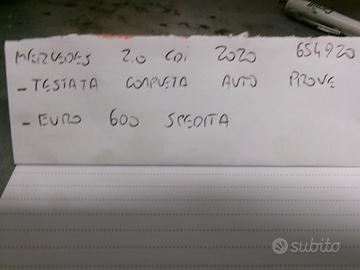 MERCEDES 2.0 CDI 2020 654920
- TESTATA COMPLETA AUTO PROVE
- EURO 600 SPEDITA
subito